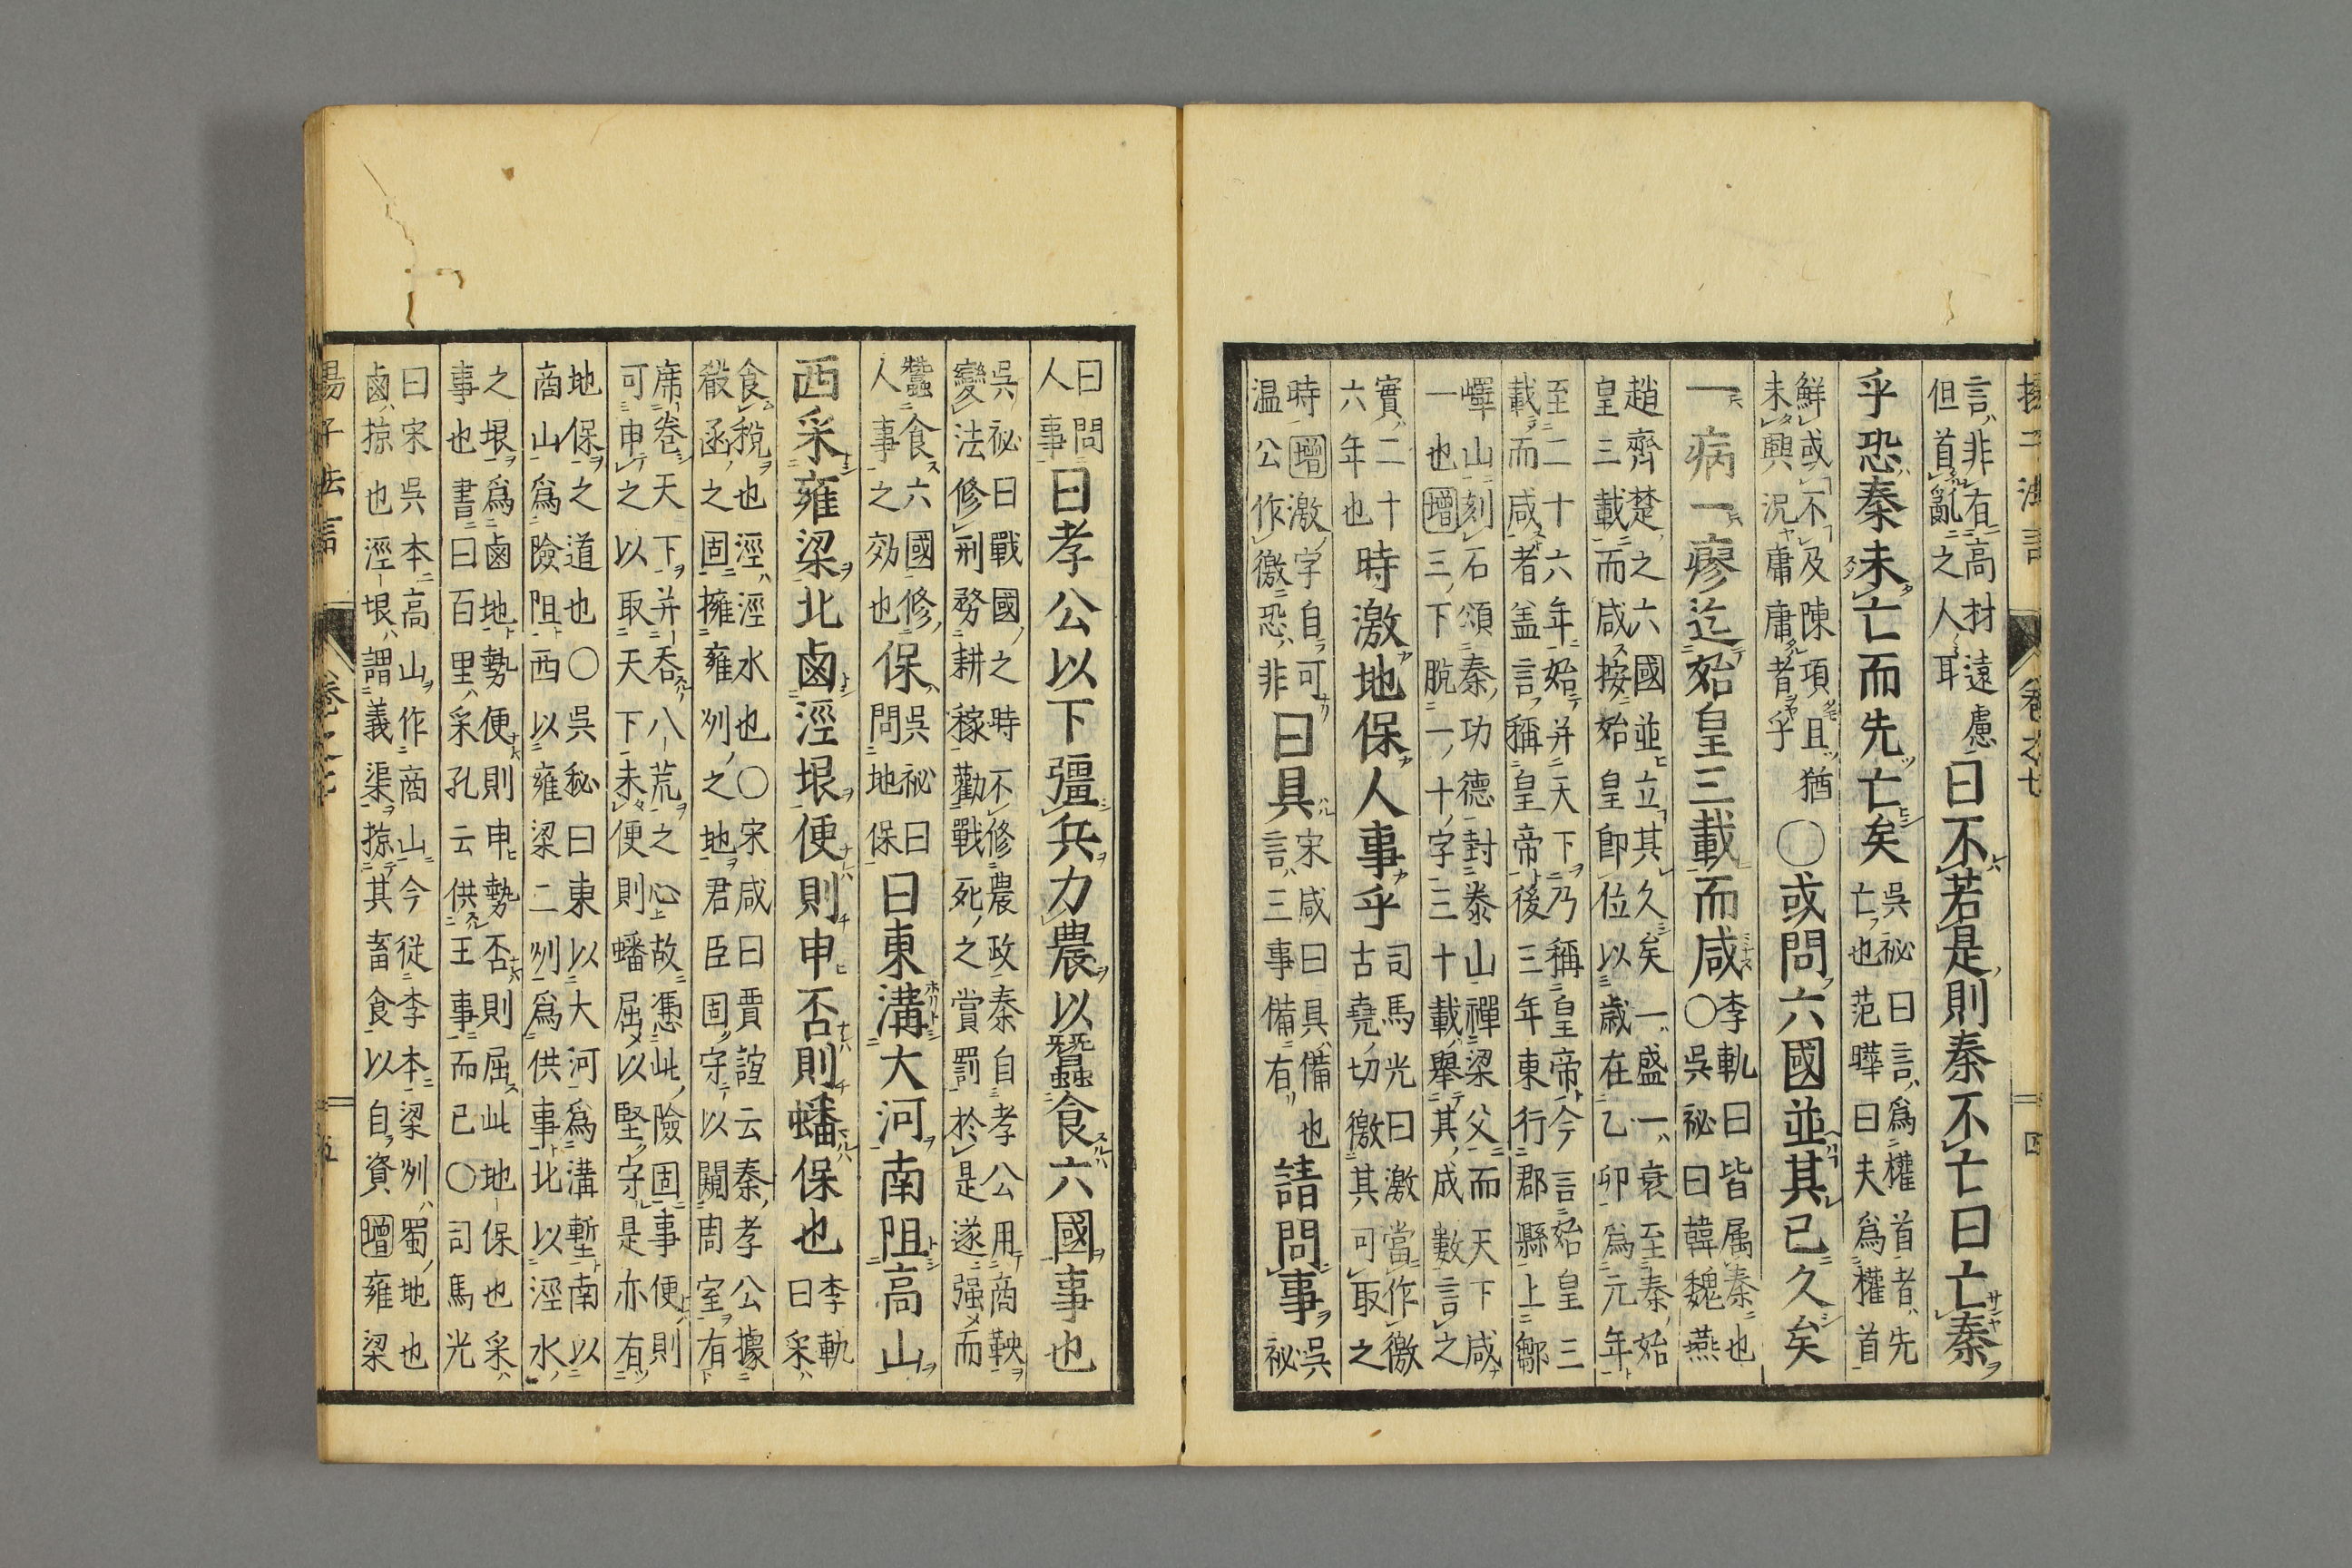 言非有高材遠慮
但首亂之人耳
曰不若是則秦不亡曰亡秦
乎恐秦未亡而先亡矣
吳祕曰言爲權首者先
亡也范曄曰夫爲權首
鮮或不及陳項且猶
未興況庸庸者乎
〇或問六國並其已久矣
一病一瘳迄始皇三載而咸
李軌曰皆属秦也
〇吳祕曰韓魏燕
趙齊楚之六國並立其久矣一盛一衰至秦始
皇三載而咸按始皇即位以歲在乙卯爲元年
至二十六年始并天下乃稱皇帝今言始皇三
載而咸者盖言稱皇帝後三年東行郡縣上鄒
嶧山刻石頌秦功德封泰山禪梁父而天下咸
一也增三下脫一十字三十載舉其成數言之
實二十
六年也
時激地保人事乎
司馬光曰激當作徼
古堯切徼其可取之
時增激字自可
温公作徼恐非
曰具
宋咸曰具備也
言三事備有
請問事
吳
祕
曰問
人事
曰孝公以下彊兵力農以蠶食六國事也
吳祕曰戰國之時不修農政秦自孝公用商鞅
變法修刑務耕稼勸戰死之賞罰於是遂强而
蠶食六國修
人事之効也
保
吳祕曰
問地保
曰東溝大河南阻高山
西采雍梁北鹵涇垠便則申否則蟠保也
李軌
曰采
食稅也涇涇水也〇宋咸曰賈誼云秦孝公據
殽函之固擁雍州之地君臣固守以闚周室有
席卷天下并吞八荒之心故憑此險固事便則
可申之以取天下未便則蟠屈以堅守是亦有
地保之道也〇吳秘曰東以大河爲溝塹南以
商山爲險阻西以雍梁二州爲供事北以涇水
之垠爲鹵地勢便則申勢否則屈此地保也采
事也書曰百里采孔云供王事而已〇司馬光
曰宋吳本高山作商山今從李本梁州蜀地也
鹵掠也涇垠謂義渠掠其畜食以自資增雍梁